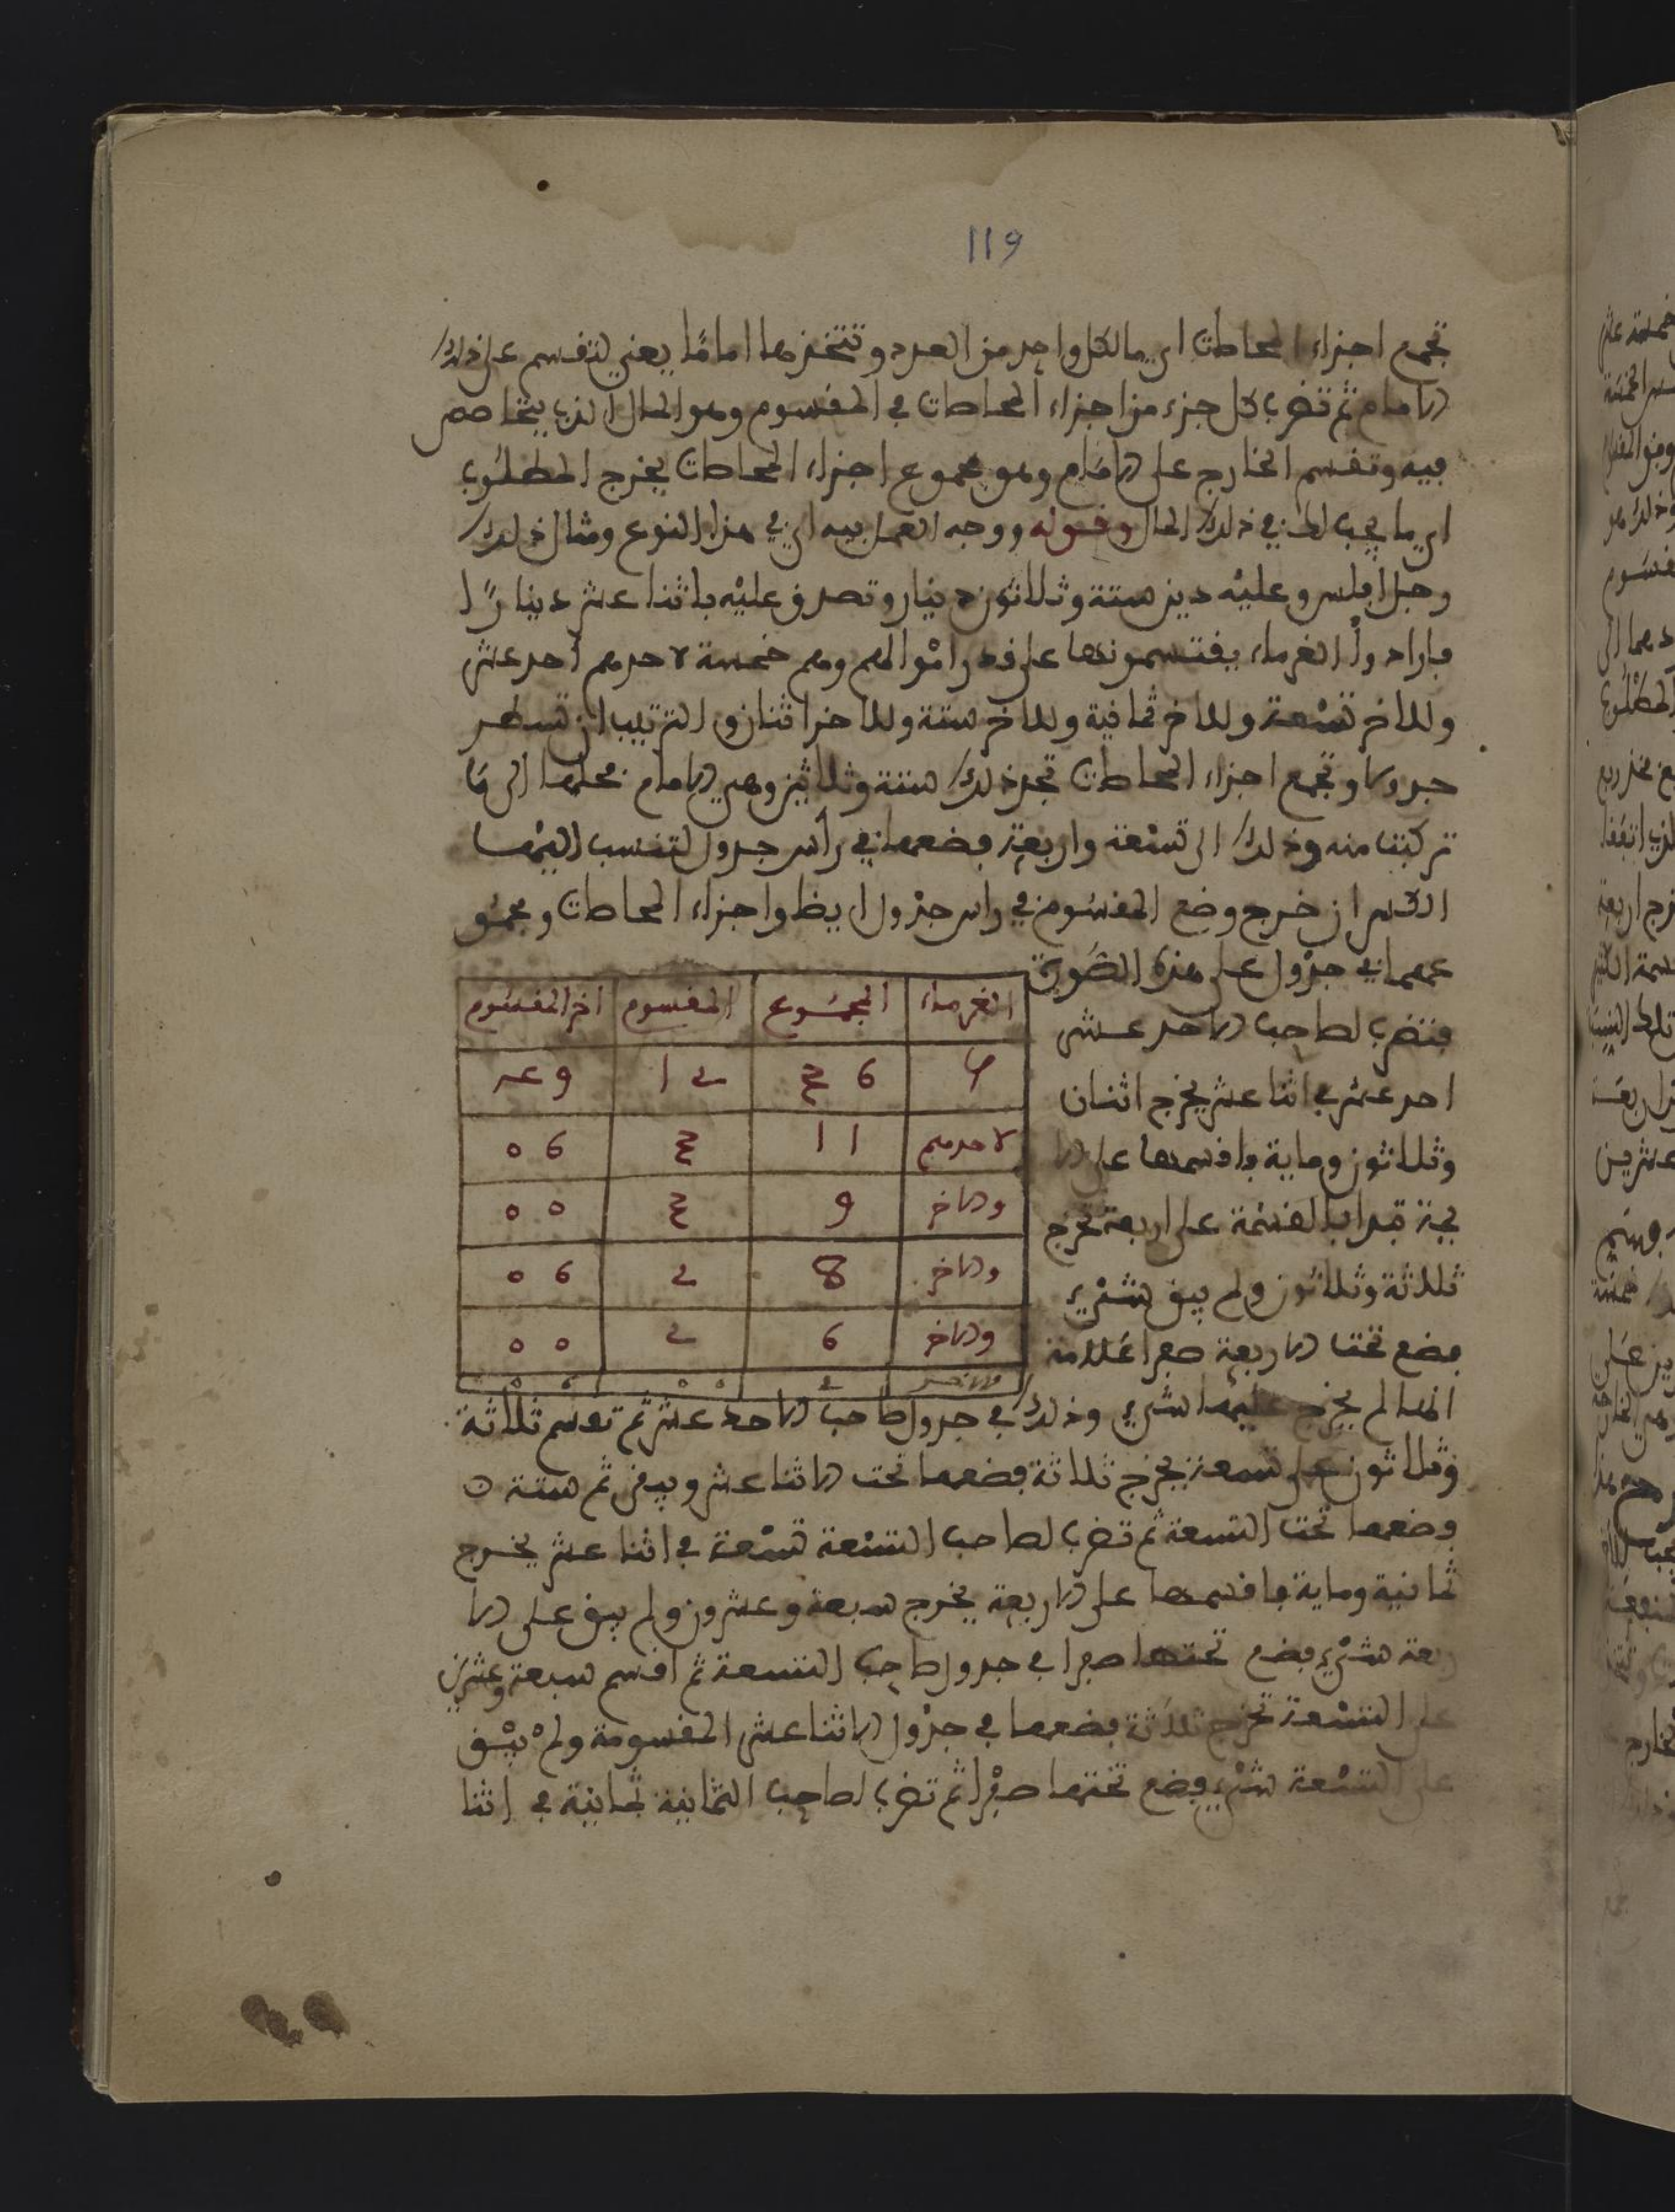 119
تجمع اجزاء المحاصات اي ما لكل واحد من العدد وتتخذها امامًا يعني لتقسم على ذلك
الامام ثم تضرب كل جزء من اجزاء المحاصات في المقسوم وهو المال الذي يتحاصص
فيه وتقسم الخارج على الامام وهو مجموع اجزاء المحاصات يخرج المطلوب
اي ما يجب له في ذلك المال وقوله ووجه العمل فيه اي في هذا النوع ومثال ذلك
رجل افلس وعليه دين ستة وثلاثون دينار وتصدق عليه باثنا عشر دينارًا
فارادوا الغرماء يقتسمونها على قدر اموالهم وهم خمسة لاحدهم أحد عشر
وللاخر تسعة وللاخر ثمانية وللاخر ستة وللاخر اثنان والترتيب ان تسطر
جدولا وتجمع اجزاء المحاصات تجد ذلك ستة وثلاثين وهي الامام فحلها الى ما
تركبت منه وذلك الى تسعة واربعة فضعها في رأس جدول لتنسب اليها
الكسر ان خرج وضع المقسوم في راس جدول ايظا واجزاء المحاصات ومجمو
عها في جدول على هذه الصورة
الغرماء | المجموع | المقسوم | اخر المقسوم
لاحدهم | 11
والاخر | 9
والاخر | 8
والاخر | 6
فتضرب لصاحب الاحد عشر
احد عشر في اثنا عشر يخرج اثنان
وثلاثون وماية فاقسمها على الا
يمة تبدا بالقسمة على اربعة تخرج
ثلاثة وثلاثون ولم يبق شيء
فضع تحت الاربعة صفرا علامة
انها لم يخرج عليها شيء وذلك في جدول صاحب الاحد عشر ثم تقسم ثلاثة
وثلاثون على تسعة يخرج ثلاثة فضعها تحت الاثنا عشر ويبقى ثم ستة
وضعها تحت التسعة ثم تضرب لصاحب التسعة تسعة في اثنا عشر يخرج
ثمانية وماية فاقسمها على الاربعة يخرج سبعة وعشرون ولم يبق على الا
ربعة شيء فضع تحتها صفرا في جدول صاحب التسعة ثم اقسم سبعة وعشرين
على التسعة تخرج ثلاثة فضعها في جدول الاثنا عشر المقسومة ولم يبق
على التسعة شيء فضع تحتها صفرا ثم تضرب لصاحب الثمانية ثمانية في اثنا